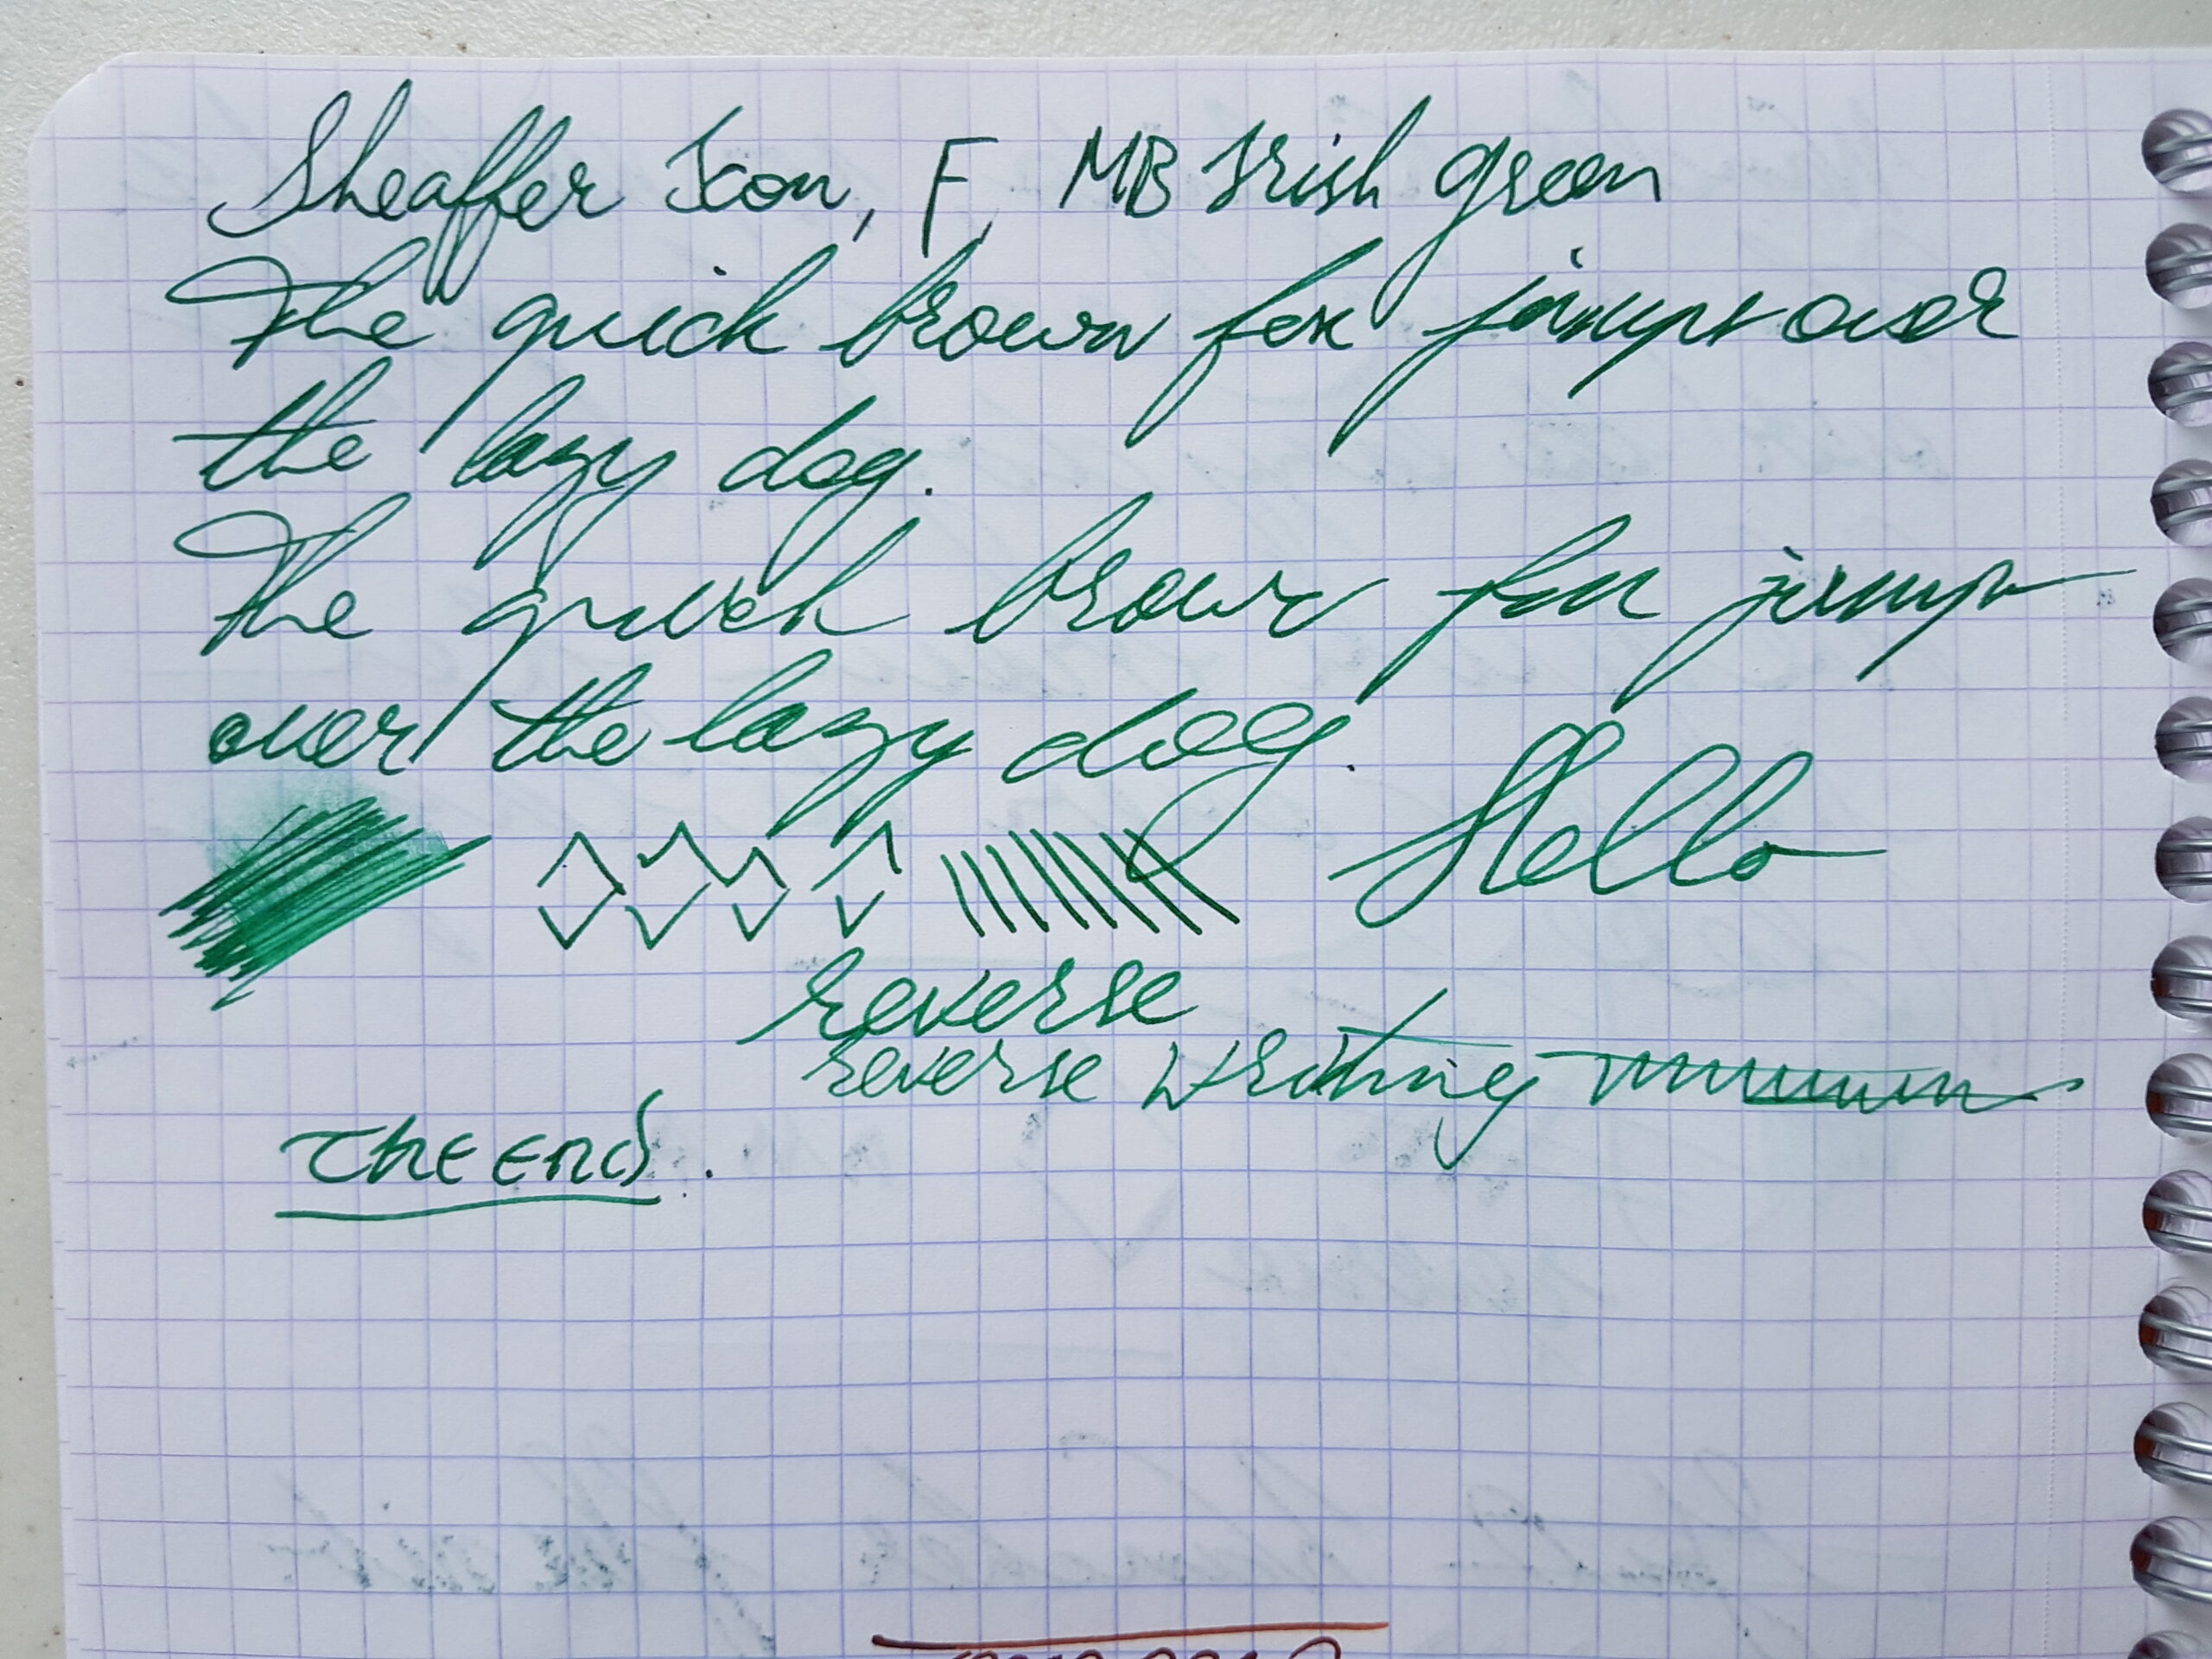 Sheaffer Icon, F, MB Irish green
The quick brown fox jumps over
the lazy dog.
The quick brown fox jump
over the lazy dog.
Hello
reverse
reverse writing
The End.